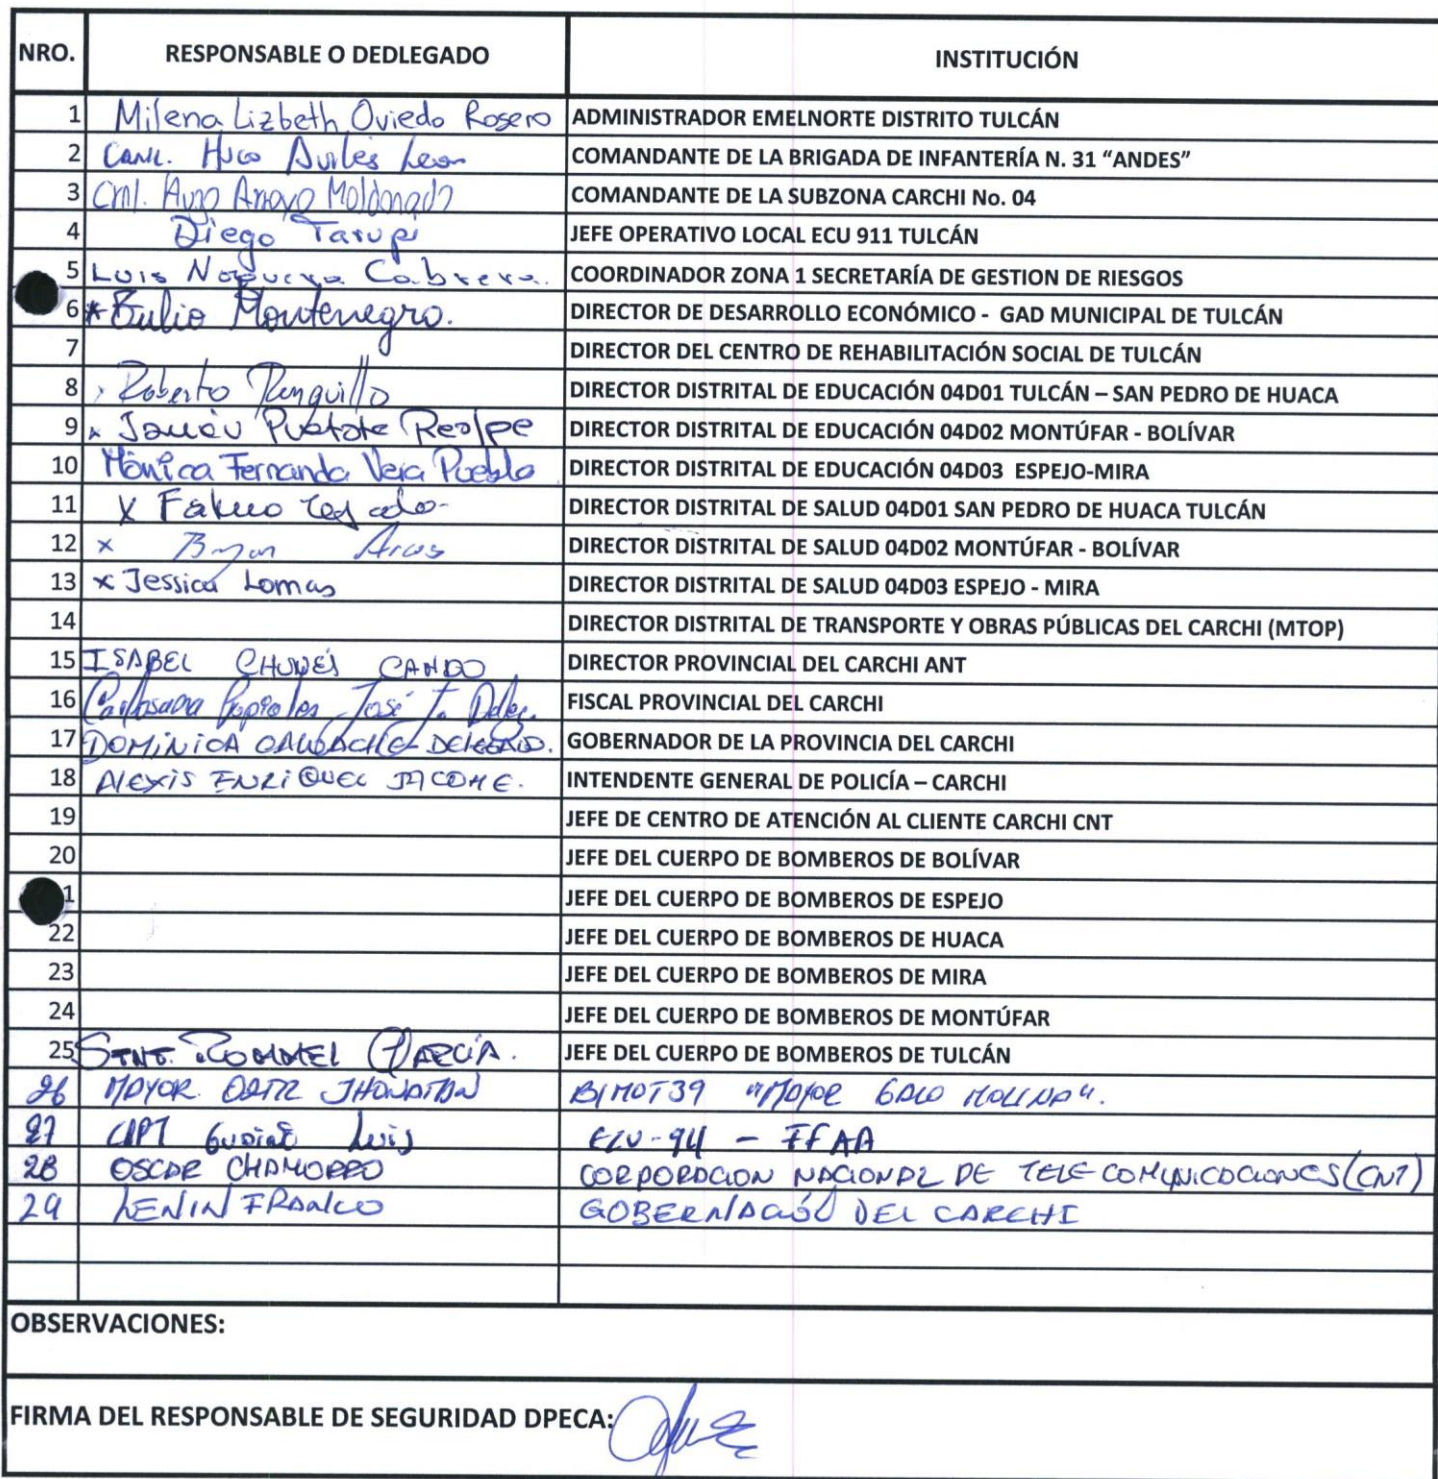 NRO. RESPONSABLE O DEDLEGADO INSTITUCIÓN
1 Milena Lizbeth Oviedo Rosero ADMINISTRADOR EMELNORTE DISTRITO TULCÁN
2 Hugo Aviles Leon COMANDANTE DE LA BRIGADA DE INFANTERÍA N. 31 “ANDES”
3 Crnl. Hugo Arroyo Maldonado COMANDANTE DE LA SUBZONA CARCHI No. 04
4 Diego Tarupi JEFE OPERATIVO LOCAL ECU 911 TULCÁN
5 Luis Noguera Cabrera. COORDINADOR ZONA 1 SECRETARÍA DE GESTION DE RIESGOS
6 * Montenegro. DIRECTOR DE DESARROLLO ECONÓMICO - GAD MUNICIPAL DE TULCÁN
7 DIRECTOR DEL CENTRO DE REHABILITACIÓN SOCIAL DE TULCÁN
8 Roberto DIRECTOR DISTRITAL DE EDUCACIÓN 04D01 TULCÁN – SAN PEDRO DE HUACA
9 x Puetate Realpe DIRECTOR DISTRITAL DE EDUCACIÓN 04D02 MONTÚFAR - BOLÍVAR
10 Mónica Fernanda Vera Puebla DIRECTOR DISTRITAL DE EDUCACIÓN 04D03 ESPEJO-MIRA
11 X DIRECTOR DISTRITAL DE SALUD 04D01 SAN PEDRO DE HUACA TULCÁN
12 x Arcos DIRECTOR DISTRITAL DE SALUD 04D02 MONTÚFAR - BOLÍVAR
13 x Jessica Lomas DIRECTOR DISTRITAL DE SALUD 04D03 ESPEJO - MIRA
14 DIRECTOR DISTRITAL DE TRANSPORTE Y OBRAS PÚBLICAS DEL CARCHI (MTOP)
15 ISABEL CANDO DIRECTOR PROVINCIAL DEL CARCHI ANT
16 José FISCAL PROVINCIAL DEL CARCHI
17 DOMINICA GOBERNADOR DE LA PROVINCIA DEL CARCHI
18 ALEXIS ENRIQUEZ JACOME. INTENDENTE GENERAL DE POLICÍA – CARCHI
19 JEFE DE CENTRO DE ATENCIÓN AL CLIENTE CARCHI CNT
20 JEFE DEL CUERPO DE BOMBEROS DE BOLÍVAR
1 JEFE DEL CUERPO DE BOMBEROS DE ESPEJO
22 JEFE DEL CUERPO DE BOMBEROS DE HUACA
23 JEFE DEL CUERPO DE BOMBEROS DE MIRA
24 JEFE DEL CUERPO DE BOMBEROS DE MONTÚFAR
25 STNT. ROMMEL GARCÍA. JEFE DEL CUERPO DE BOMBEROS DE TULCÁN
26 MAYOR. JHONATAN BIMOT39 "MAYOR GALO MOLINA".
27 CAPT Luis - FFAA
28 OSCAR CHAMORRO CORPORACION NACIONAL DE TELECOMUNICACIONES (CNT)
29 LENIN FRANCO GOBERNACIÓN DEL CARCHI
OBSERVACIONES:
FIRMA DEL RESPONSABLE DE SEGURIDAD DPECA: